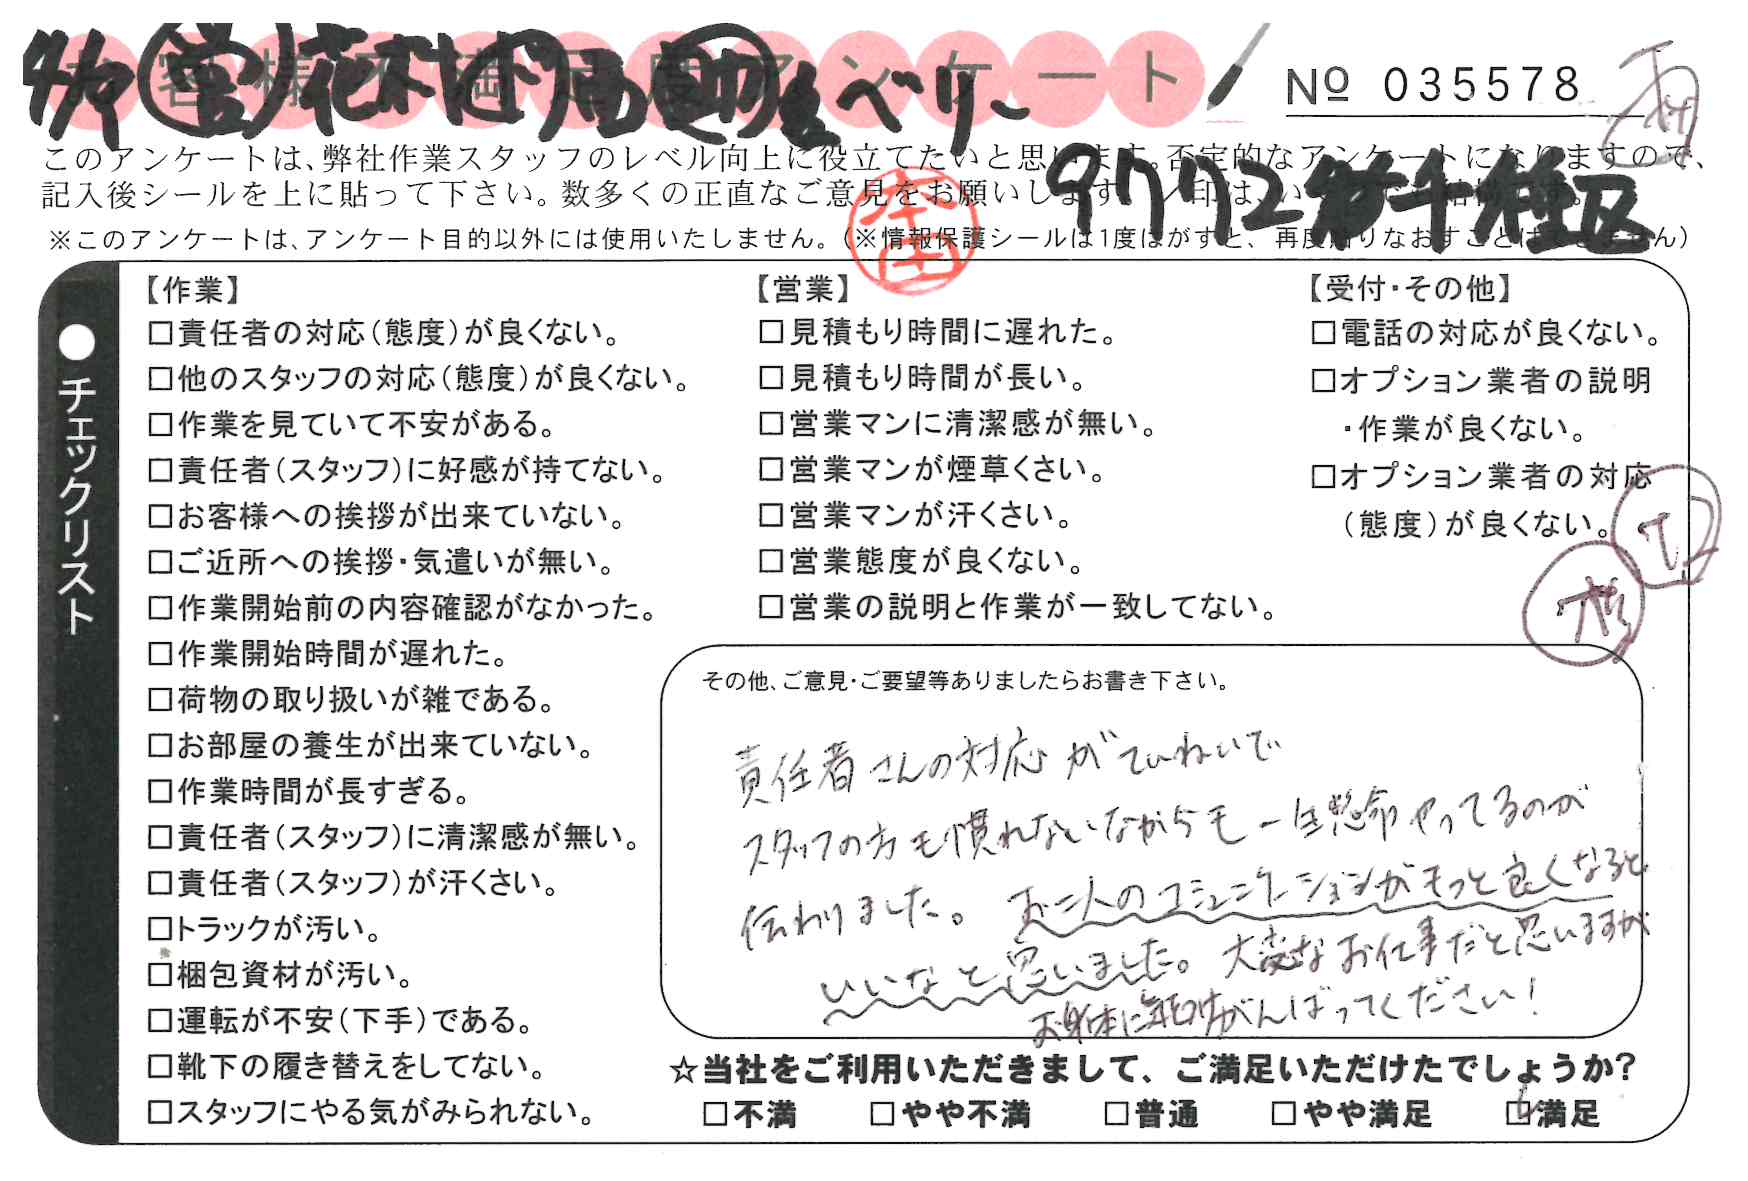 お客様不満足度アンケート
№ 035578
このアンケートは、弊社作業スタッフのレベル向上に役立てたいと思います。否定的なアンケートになりますので、
記入後シールを上に貼って下さい。数多くの正直なご意見をお願いします
※このアンケートは、アンケート目的以外には使用いたしません。(※情報保護シールは1度はがすと、再度貼りなおすことはできません)
●チェックリスト
【作業】
□責任者の対応(態度)が良くない。
□他のスタッフの対応(態度)が良くない。
□作業を見ていて不安がある。
□責任者(スタッフ)に好感が持てない。
□お客様への挨拶が出来ていない。
□ご近所への挨拶・気遣いが無い。
□作業開始前の内容確認がなかった。
□作業開始時間が遅れた。
□荷物の取り扱いが雑である。
□お部屋の養生が出来ていない。
□作業時間が長すぎる。
□責任者(スタッフ)に清潔感が無い。
□責任者(スタッフ)が汗くさい。
□トラックが汚い。
□梱包資材が汚い。
□運転が不安(下手)である。
□靴下の履き替えをしてない。
□スタッフにやる気がみられない。
【営業】
□見積もり時間に遅れた。
□見積もり時間が長い。
□営業マンに清潔感が無い。
□営業マンが煙草くさい。
□営業マンが汗くさい。
□営業態度が良くない。
□営業の説明と作業が一致してない。
【受付・その他】
□電話の対応が良くない。
□オプション業者の説明
・作業が良くない。
□オプション業者の対応
(態度)が良くない。
その他、ご意見・ご要望等ありましたらお書き下さい。
責任者さんの対応がていねいで
スタッフの方も慣れないながらも一生懸命やってるのが
伝わりました。お二人のコミュニケーションがもっと良くなると
いいなと思いました。大変なお仕事だと思いますが
お身体に気をつけがんばってください!
☆当社をご利用いただきまして、ご満足いただけたでしょうか?
□不満 □やや不満 □普通 □やや満足 □満足